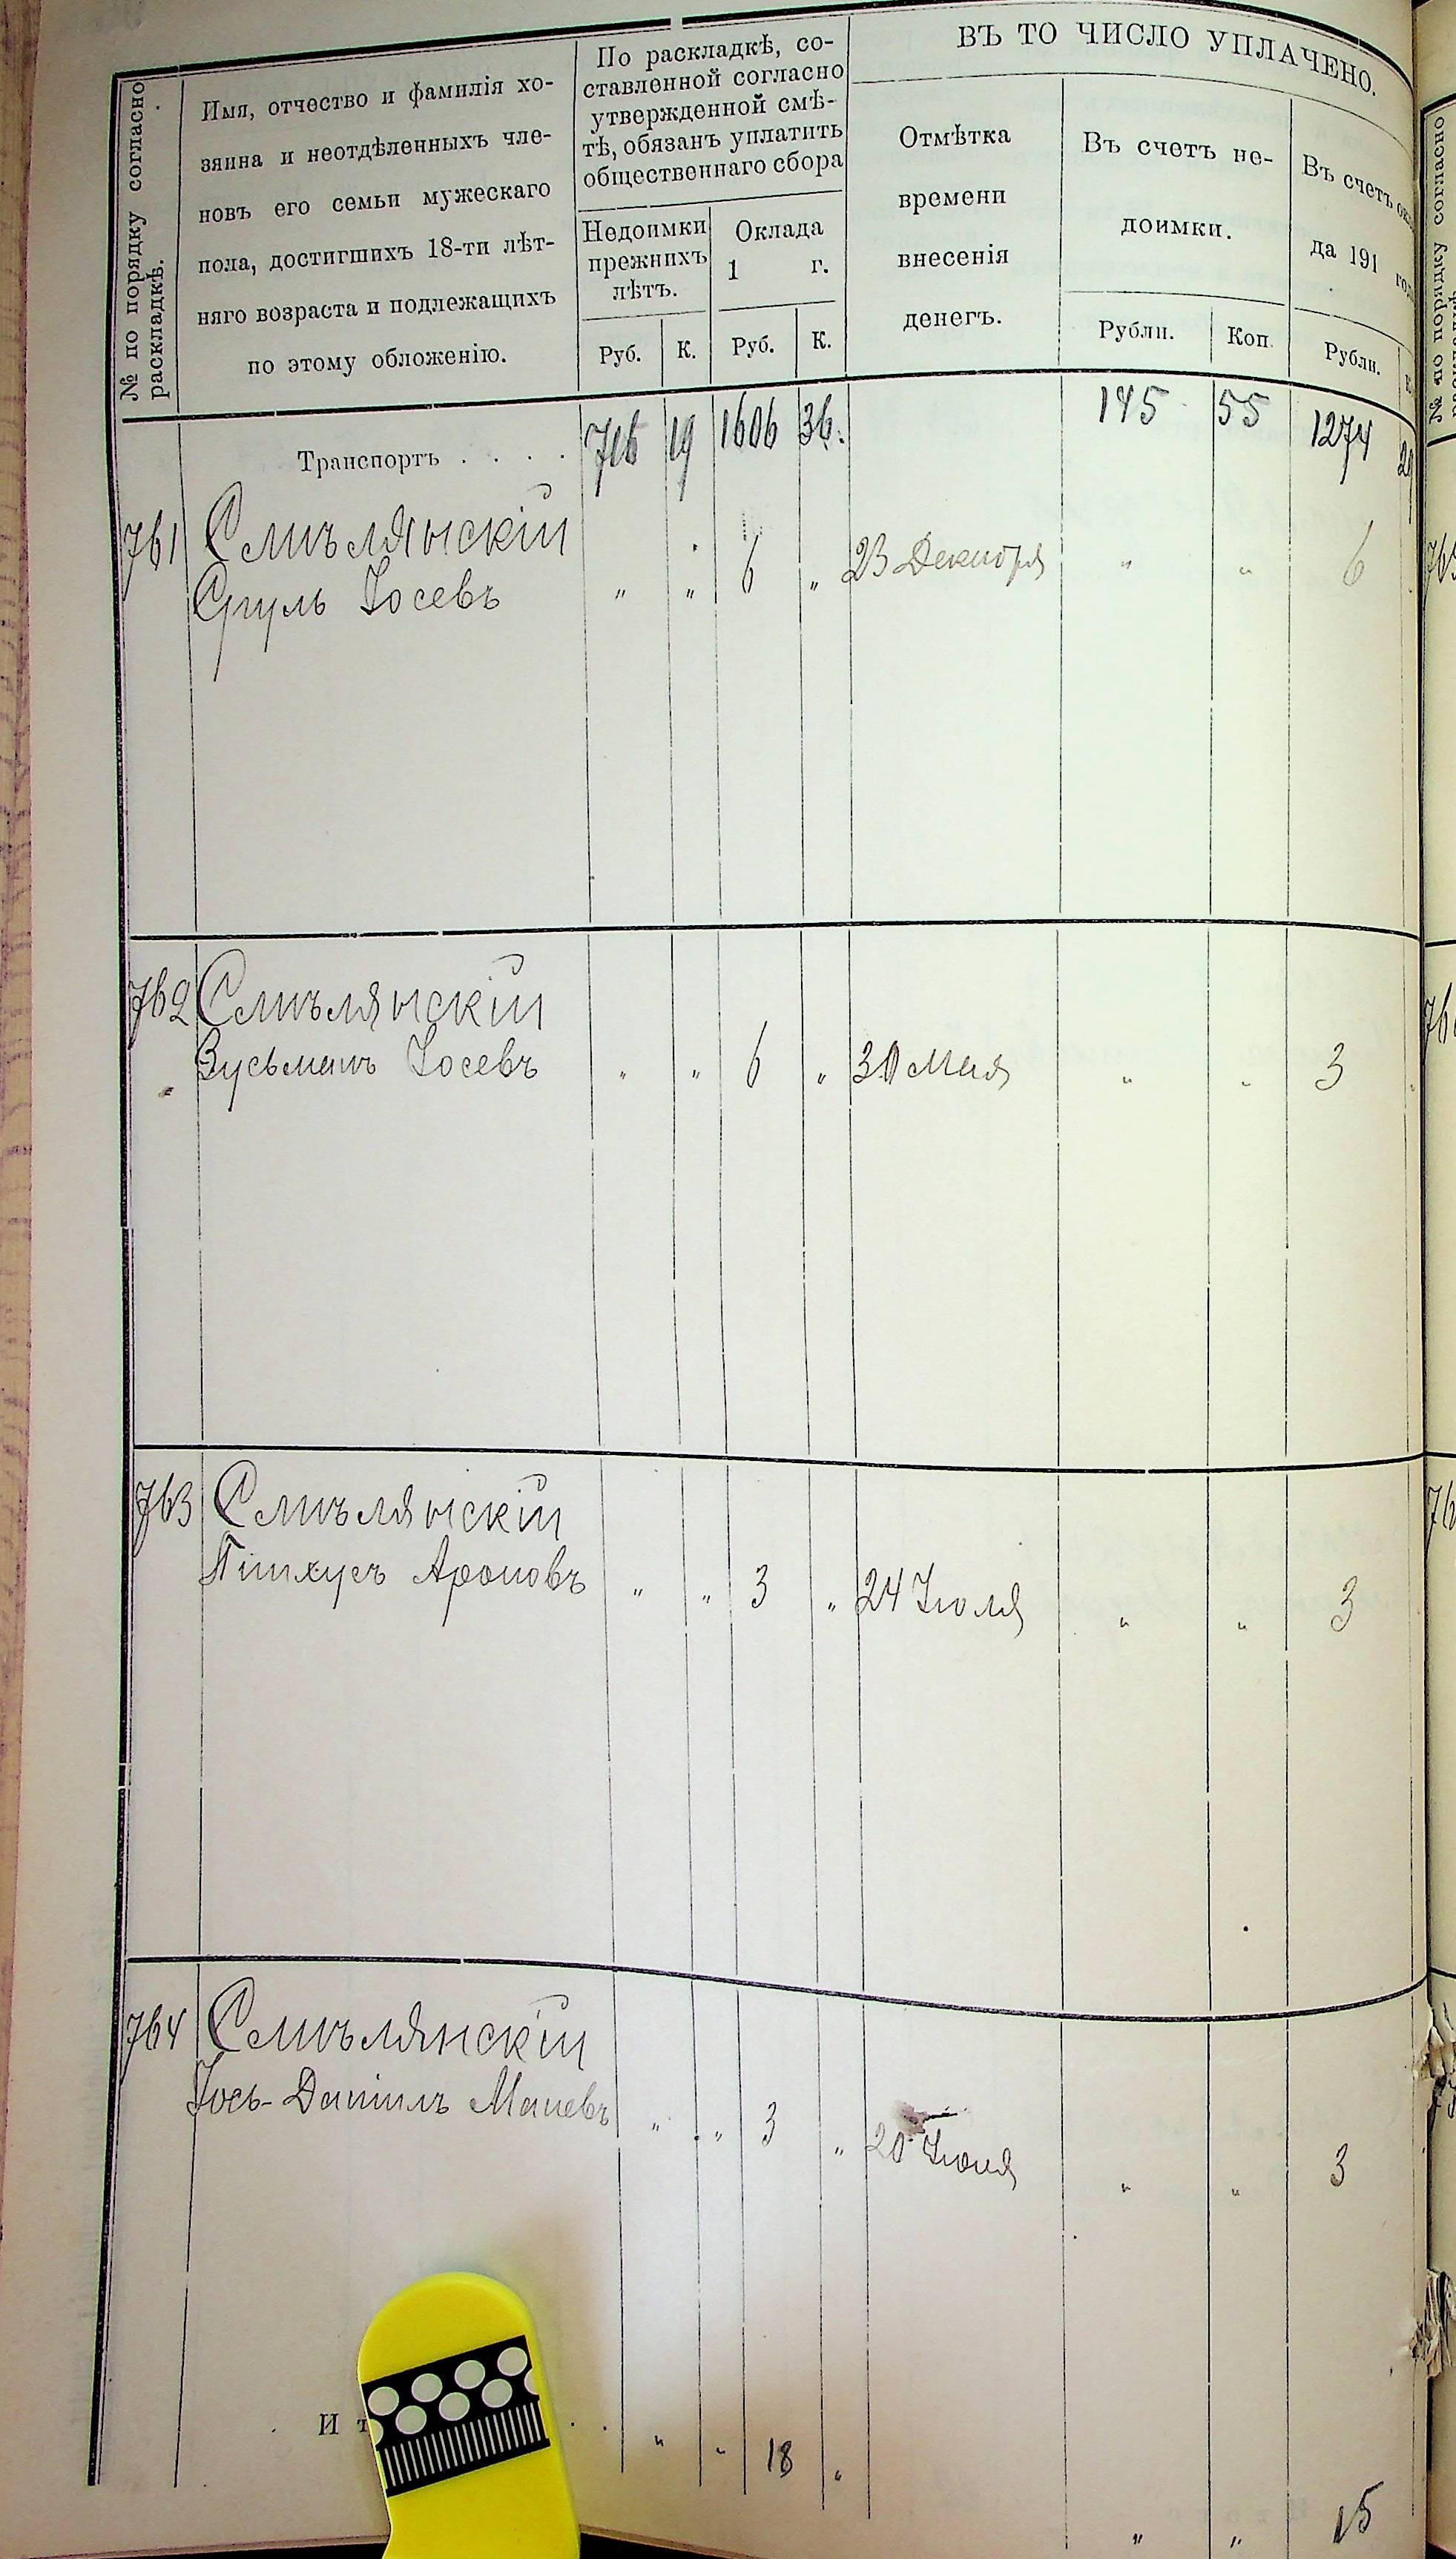 № по порядку согласно
раскладкѣ.
Имя, отчество и фамилія хо-
зяина и неотдѣленныхъ чле-
новъ его семьи мужескаго
пола, достигшихъ 18-ти лѣт-
няго возраста и подлежащихъ
по этому обложенію.
По раскладкѣ, со-
ставленной согласно
утвержденной смѣ-
тѣ, обязанъ уплатить
общественнаго сбора
Недоимки
прежнихъ
лѣтъ.
Оклада
1 г.
Руб. К. Руб. К.
ВЪ ТО ЧИСЛО УПЛАЧЕНО.
Отмѣтка
времени
внесенія
денегъ.
Въ счетъ не-
доимки.
Рубли. Коп.
Въ счетъ
да 191
Рубли.
Транспортъ . . . . 716 19 1606 36. 145 55 1274
761 Смѣлянскій
Сруль Іосевъ " " 6 " 23 Декабря " " 6
762 Смѣлянскій
Зусьманъ Іосевъ " " 6 " 30 Мая " " 3
763 Смѣлянскій
Пинхусъ Ароновъ " " 3 " 24 Іюля " " 3
764 Смѣлянскій
Іось-Данилъ " " 3 " 20 " " 3
" " 18 " " " 15
№ по порядку согласно